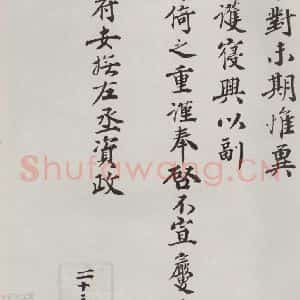 對未期惟冀
護寢興以副
倚之重謹奉啓不宣
府安撫左丞資政
Shufawang.CN
二十三